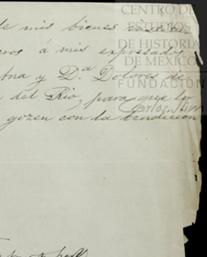 de mis bienes
eros á mis expresados
Ana y D.ª Dolores de
del Rio, para que lo
gozen con la bendicion
CENTRO DE
ESTUDIOS
DE HISTORIA
DE MÉXICO
FUNDACIÓN
Carlos Slim